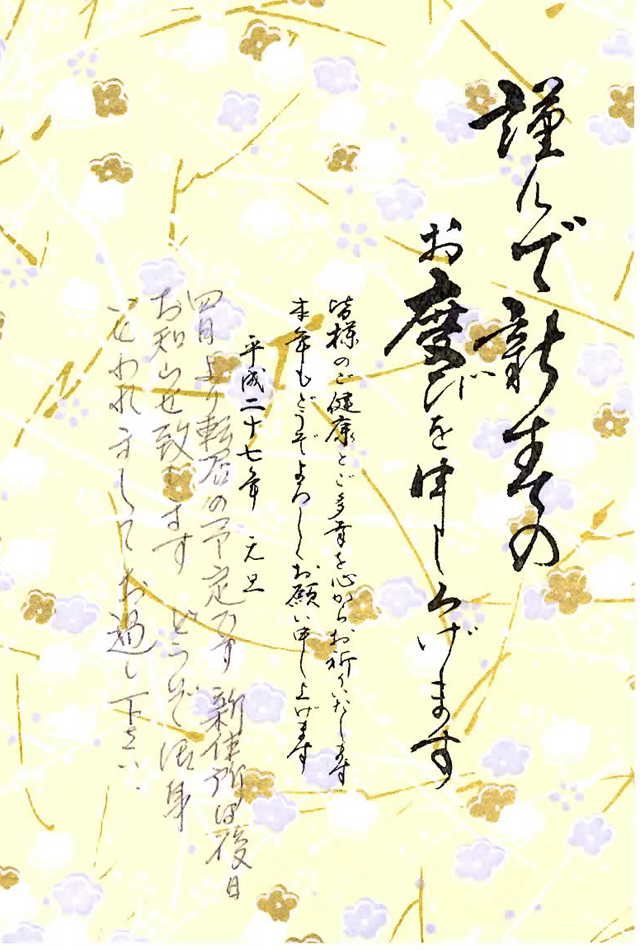 謹んで新春の
お慶びを申し上げます
皆様のご健康とご多幸を心からお祈りいたします
本年もどうぞよろしくお願い申し上げます
平成二十七年 元旦
四月より転居の予定です 新住所は後日
お知らせ致します どうぞ御身
いとわれましてお過し下さい